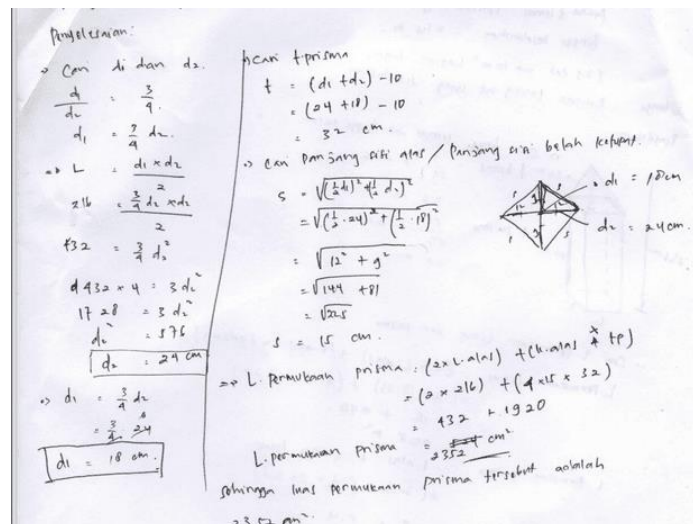 Penyelesaian:
» Cari d1 dan d2.
d1/d2 = 3/4.
d1 = 3/4 d2.
=> L = d1 x d2 / 2
216 = 3/4 d2 x d2 / 2
432 = 3/4 d2²
432 x 4 = 3 d2²
1728 = 3 d2²
d2² = 576
d2 = 24 cm
» d1 = 3/4 d2
= 3/4 . 24
d1 = 18 cm.
» cari t prisma
t = (d1 + d2) - 10
= (24 + 18) - 10
= 32 cm.
» cari panjang sisi alas / panjang sisi belah ketupat.
s = √(½ d1)² + (½ d2)²
= √(½ . 24)² + (½ . 18)²
= √12² + 9²
= √144 + 81
= √225
s = 15 cm.
d1 = 18 cm
d2 = 24 cm.
=> L. permukaan prisma = (2 x L. alas) + (k. alas x tp)
= (2 x 216) + (4 x 15 x 32)
= 432 + 1920
L. permukaan prisma = 2352 cm²
sehingga luas permukaan prisma tersebut adalah
2352 cm².